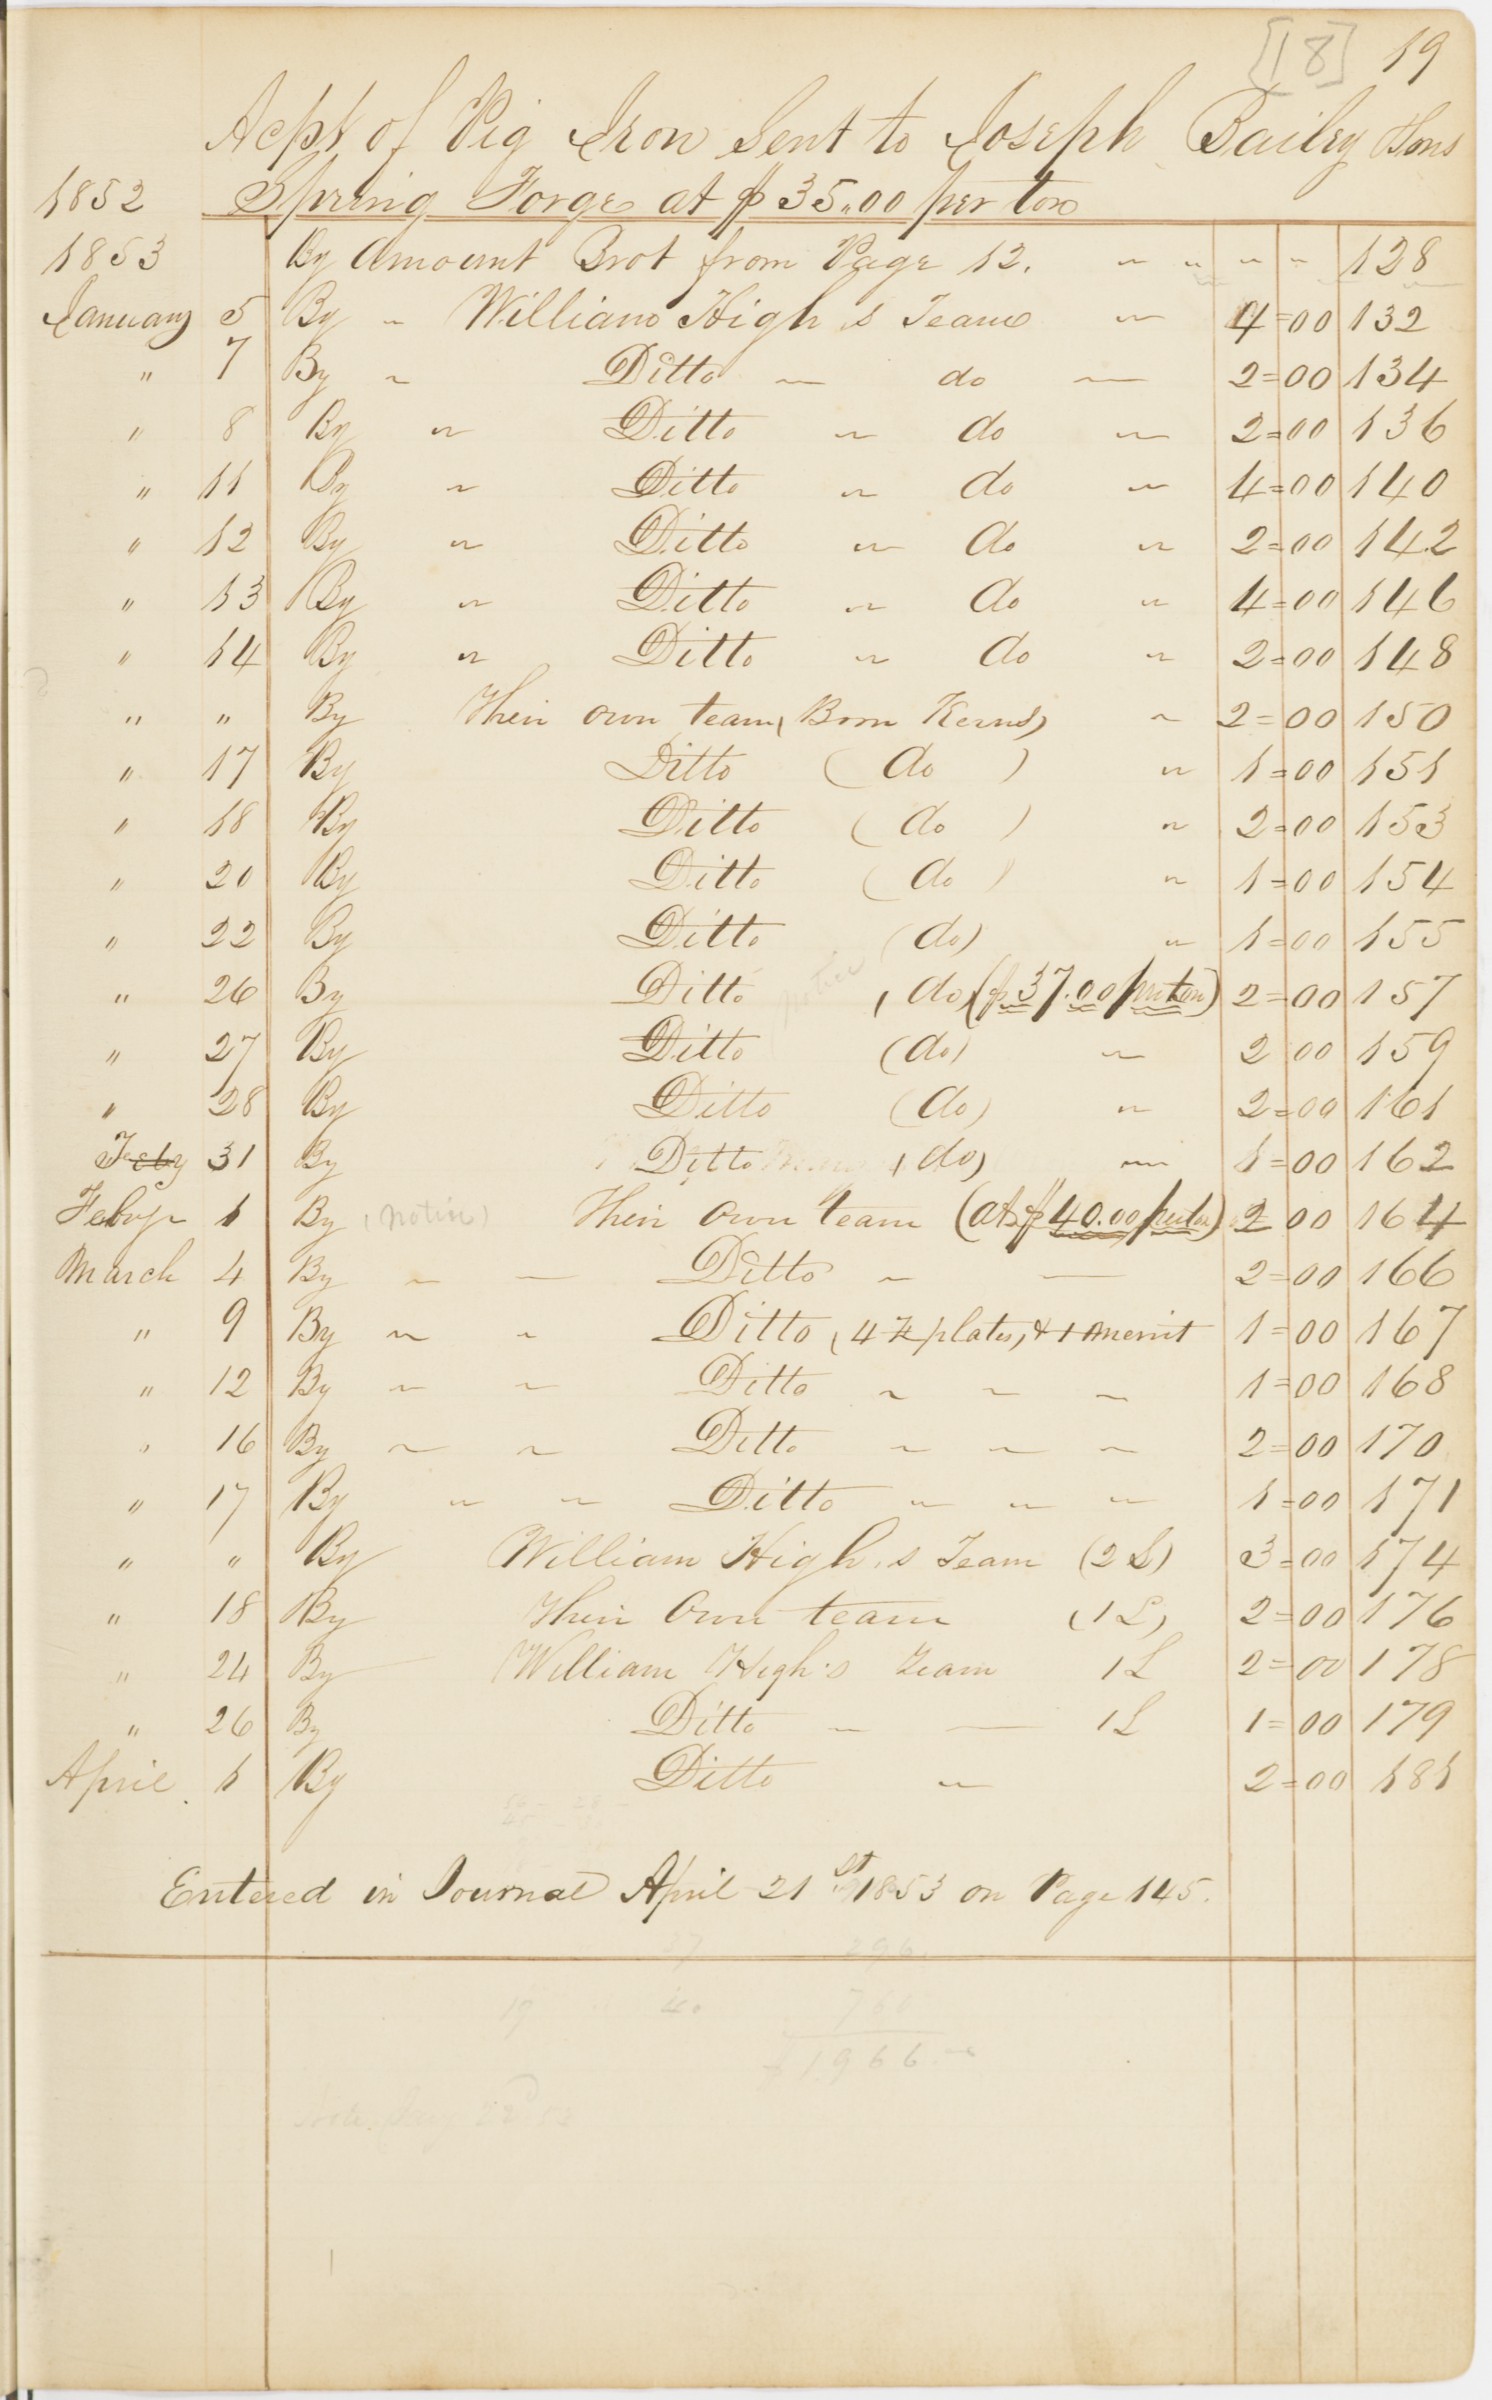 [18] 19
Acpt of Pig Iron Sent to Joseph Bailey & Sons
1852 Spring Forge at $35.00 per ton
1853 By Amount Brot from Page 12. 〃 〃 〃 〃 128
January 5 By 〃 William High,s Team 〃 4=00 132
〃 7 By 〃 Ditto 〃 do 〃 2=00 134
〃 8 By 〃 Ditto 〃 do 〃 2=00 136
〃 11 By 〃 Ditto 〃 do 〃 4=00 140
〃 12 By 〃 Ditto 〃 do 〃 2=00 142
〃 13 By 〃 Ditto 〃 do 〃 4=00 146
〃 14 By 〃 Ditto 〃 do 〃 2=00 148
〃 〃 By Their own team, Kerns) 〃 2=00 150
〃 17 By Ditto (do) 〃 1=00 151
〃 18 By Ditto (do) 〃 2=00 153
〃 20 By Ditto (do) 〃 1=00 154
〃 22 By Ditto (do) 〃 1=00 155
〃 26 By Ditto , do, ($37.00 per ton) 2=00 157
〃 27 By Ditto (do) 〃 2 00 159
〃 28 By Ditto (do) 〃 2=00 161
Feby 31 By Ditto , do) 〃 1=00 162
Febry 1 By (notice) Their own team (at $40.00 per ton) 2 00 164
March 4 By 〃 — Ditto 〃 — 2=00 166
〃 9 By 〃 〃 Ditto, 4 plates, & 1 1=00 167
〃 12 By 〃 〃 Ditto 〃 〃 〃 1=00 168
〃 16 By 〃 〃 Ditto 〃 〃 〃 2=00 170
〃 17 By 〃 〃 Ditto 〃 〃 〃 1=00 171
〃 〃 By William High,s Team (2 L) 3=00 174
〃 18 By Their Own team (1 L) 2=00 176
〃 24 By William High's Team 1 L 2=00 178
〃 26 By Ditto 〃 — 1 L 1=00 179
April 1 By Ditto 〃 2=00 181
Entered in Journal April 21st 1853 on Page 145.
37 296
19 40 760
1966